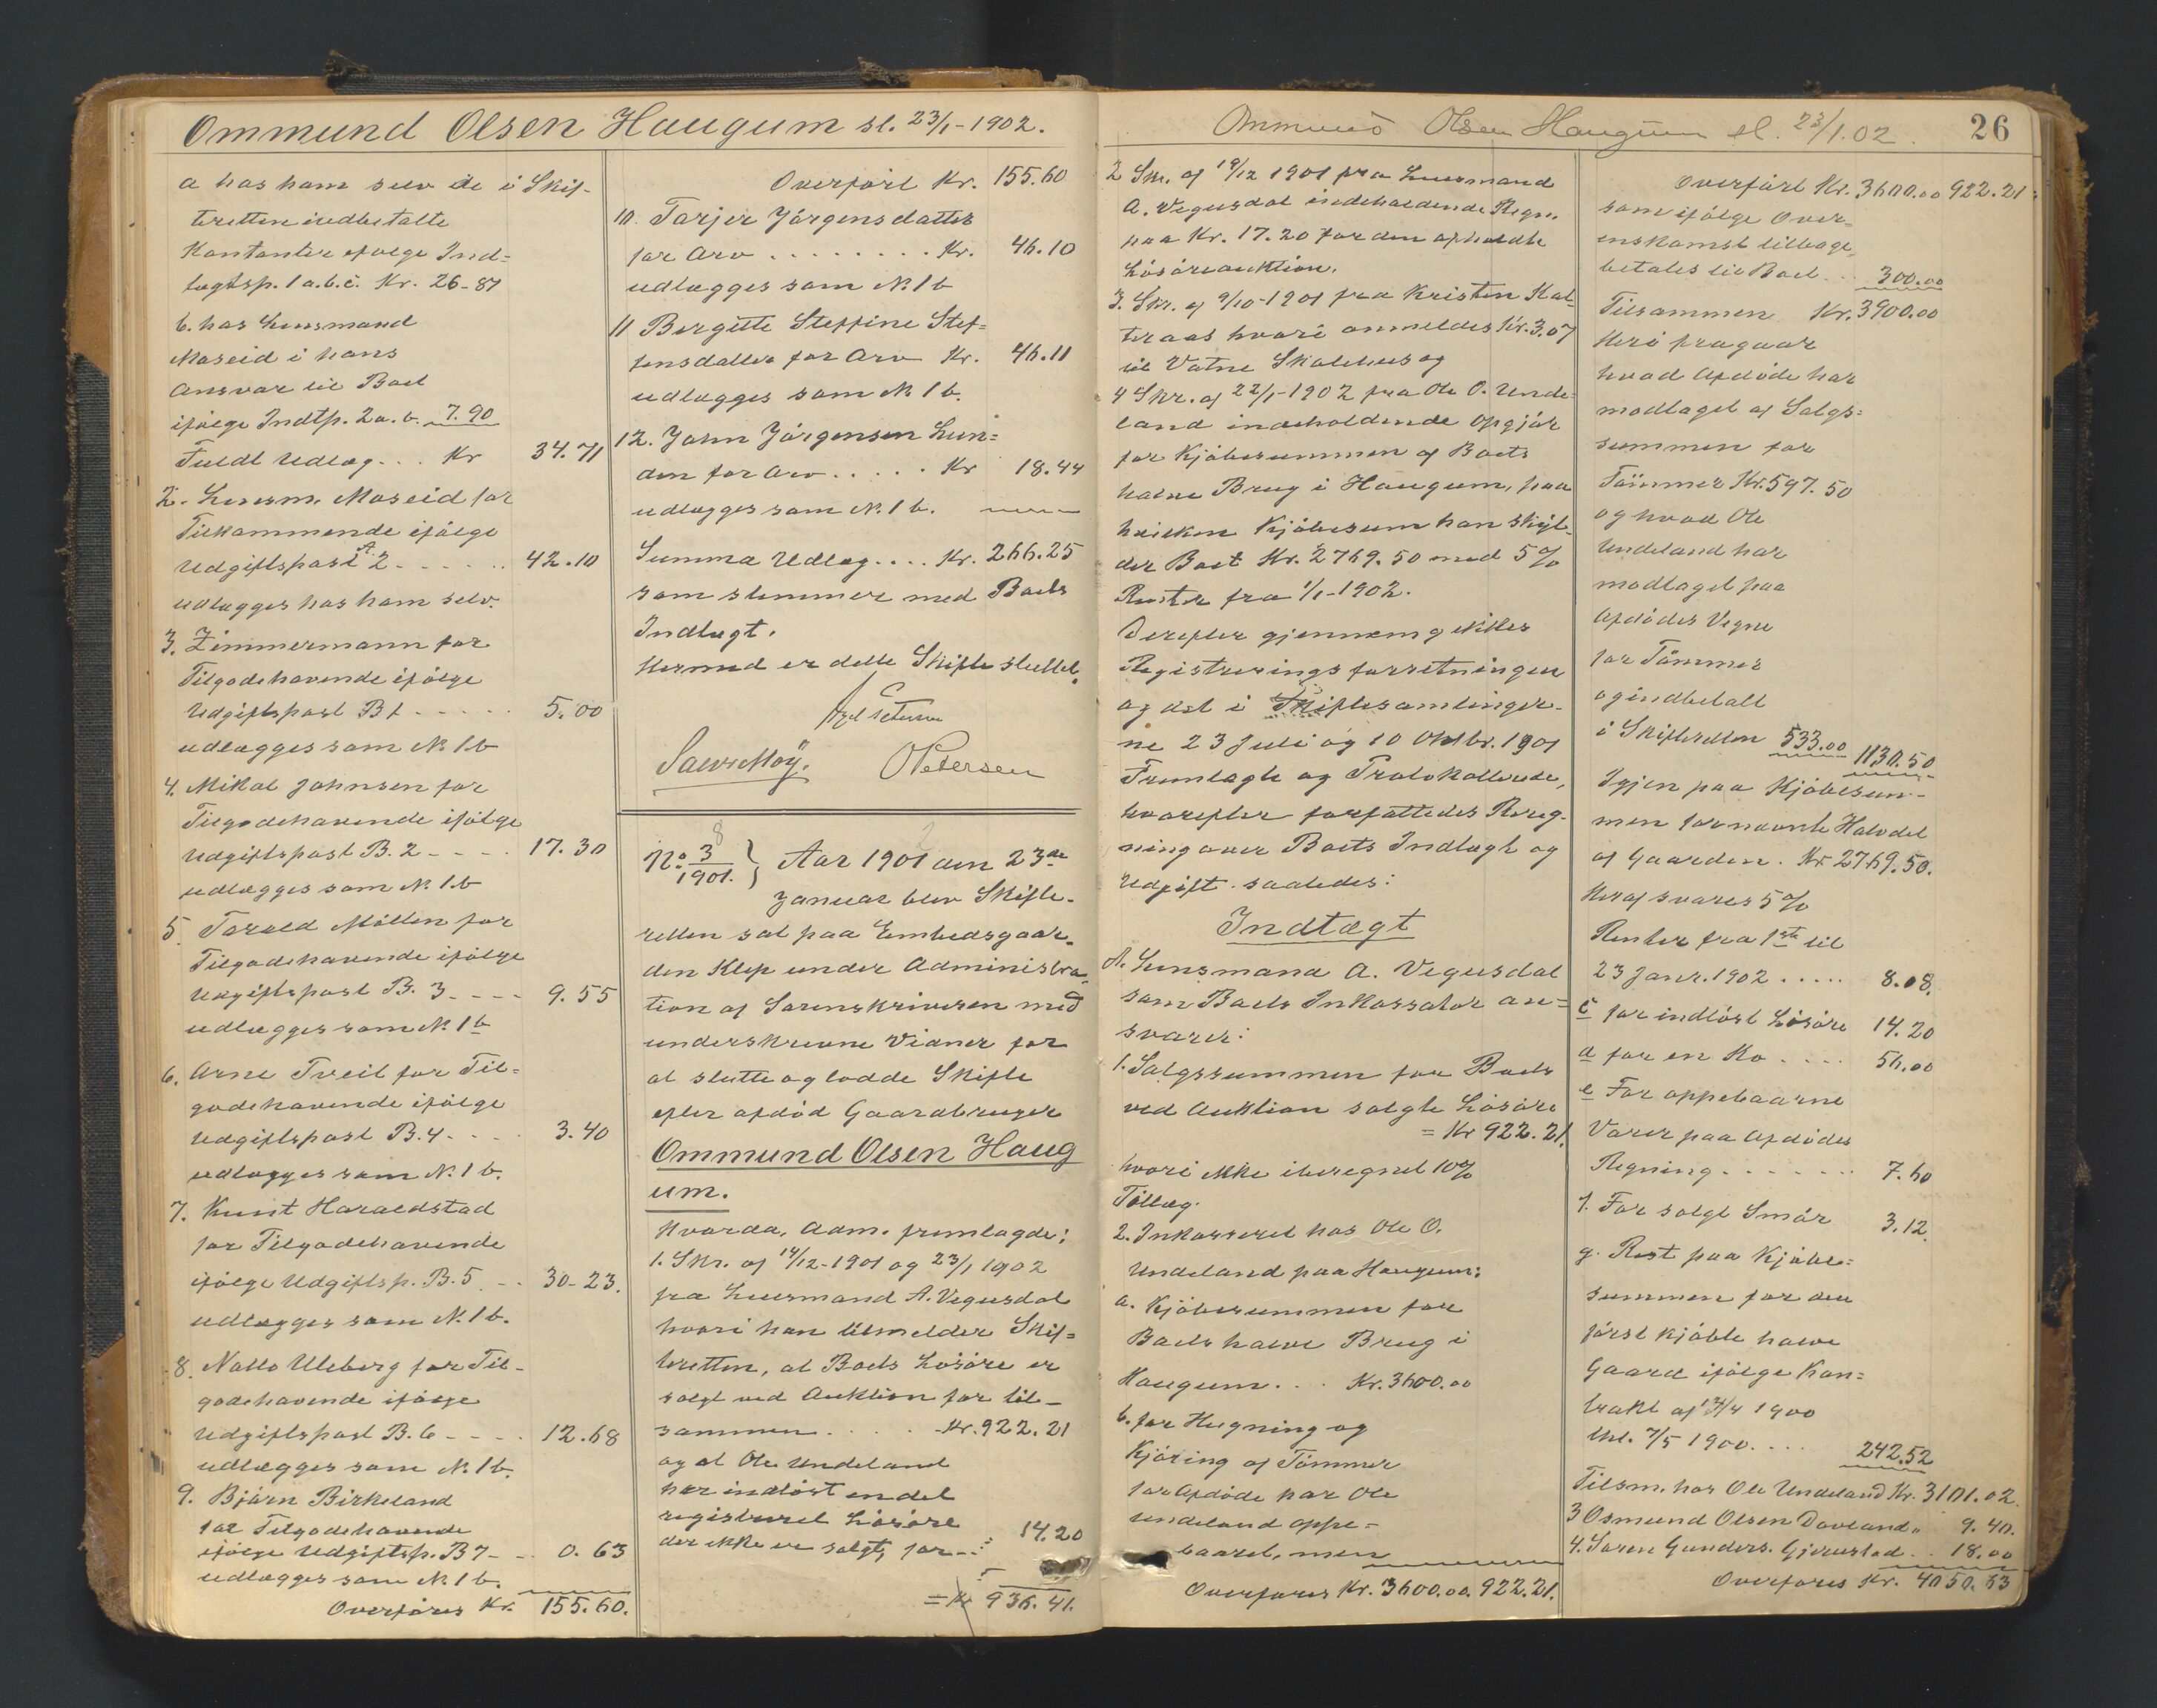 Ommund Olsen Haugum sl. 23/1-1902.
a hos ham selv de i Skif-
teretten indbetalte
Kontanter ifølge Ind-
tægtsp. 1 a. b. c. Kr. 26-81
b. hos Lensmand
Moseid i hans
Ansvar til Boet
ifølge Indtp. 2a. b. 7.90
Fuldt Udlæg... Kr 34.71
2. Lensm. Moseid for
Tilkommende ifølge
Udgiftspost A. 2 - - - - - 42.10
udlægges hos ham selv.
3. Zimmermann for
Tilgodehavende ifølge
Udgiftspost B 1 - - - - - 5.00
udlægges som No. 1.b
4. Mikal Johnsen for
Tilgodehavende ifølge
Udgiftspost B. 2 - - - - 17.30
udlægges som No. 1.b
5. Torald Möllen for
Tilgodehavende ifølge
Udgiftspost B. 3 - - - - 9.55
udlægges som No. 1b
6. Arne Tveit for Til-
godehavende ifølge
Udgiftspost B. 4 - - - - 3.40
udlægges som No. 1 b.
7. Kunt Haraldstad
for Tilgodehavende
ifølge Udgiftsp. B. 5 - - 30-23.
udlægges som No. 1 b.
8. Uleberg for Til-
godehavende ifølge
Udgiftspost B. 6 - - - - 12.68
udlægges som No. 1 b.
9. Bjørn Birkeland
for Tilgodehavende
ifølge Udgiftsp. B 7 - - 0.63
udlægges som No. 1 b.
Overføres Kr. 155.60.
Overført Kr. 155.60
10. Tarjer Jørgensdatter
for Arv . . . . . . . . Kr. 46.10
udlægges som No. 1 b
11 Bergitte Steffine Stef-
fensdatter for Arv Kr. 46.11
udlægges som No. 1 b.
12. John Jørgensen Lun-
den for Arv . . . . . Kr 18.44
udlægges som No. 1 b.
Summa Udlæg.... Kr. 266.25
som stemmer med Boets
Indtægt.
Hermed er dette Skifte sluttet.
O Pedersen
No. 3/1901. } Aar 1901 den 23de
8
Januar blev Skifte-
retten sat paa Embedsgaar-
den Klep under Administra-
tion af Sorenskriveren med
underskrevne Vidner for
at slutte og lodde Skifte
efter afdød Gaardbruger
Ommund Olsen Haug
um.
Hvorda, Adm. fremlagde:
1. Skr. af 14/12-1901 og 23/1 1902
fra Lensmand A. Vegusdal
hvori han tilmelder Skif-
teretten, at Boets Løsøre er
solgt ved Auktion for til-
sammen . . . . . Kr. 922.21
og at Ole Undeland
har indløst en del
registreret Løsøre
der ikke er solgt, for - - 14.20
= Kr 936.41.
Ommund Olsen Haugum sl. 23/1.02.
26
2 Skr. af 19/12 1901 fra Lensmand
A. Vegusdal indeholdende Regn.
paa Kr. 17.20 for den afholdte
Løsøreauktion.
3. Skr. af 9/10-1901 fra Kristen Kal-
teraas hvori anmeldes Kr. 3.07
til Vatne Skolehus og
4 Skr. af 22/1-1902 fra Ole O. Unde-
land indeholdende Opgjør
for Kjøbesummen af Boets
halve Brug i Haugum, paa
hvilken Kjøbesum han skyl-
der Boet Kr. 2769.50 med 5%
Renter fra 1/1-1902.
Derefter gjennemgikkes
Registreringsforretningen
og det i Skiftesamlinger-
ne 23 Juli og 10 Oktbr. 1901
Fremlagte og Protokollerede,
hvorefter forfattedes Reg-
ning over Boets Indtægt og
Udgift saaledes:
Indtægt
A. Lensmand A. Vegusdal
som Boets Inkassator an-
svarer:
1. Salgssummen for Boets
ved Auktion solgte Løsøre
= Kr 922.21.
hvori ikke iberegnet 10%
Tillæg.
2. Inkasseret hos Ole O.
Undeland paa Haugum:
a. Kjøbesummen for
Boets halve Brug i
Haugum. . . Kr. 3600.00
b. for Hugning og
Kjøring af Tømmer
for Afdøde har Ole
Undeland oppe-
baaret, men
Overføres Kr. 3600.00. 922.21.
Overført Kr. 3600.00 922.21.
som ifølge Over-
enskomst tilbage-
betales til Boet . . . 300.00
Tilsammen Kr. 3900.00
Heri fragaar
hvad Afdøde har
modtaget af Salgs-
summen for
Tømmer Kr. 597.50
og hvad Ole
Undeland har
modtaget paa
Afdødes Vegne
for Tømmer
og indbetalt
i Skifteretten 533.00 1130.50
Igjen paa Kjøbesum-
men for nævnte Halvdel
af Gaarden. Kr. 2769.50.
Heraf svares 5%
Renter fra 1ste til
23 Janr. 1902 . . . . . 8.08.
c for indløst Løsøre 14.20
d for en Ko . . . . 56.00
e For oppebaarne
Varer paa Afdødes
Regning . . . . . . 7.60
f. For solgt Smør 3.12.
g. Rest paa Kjøbe-
summen for den
først kjøbte halve
Gaard ifølge Kon-
trakt af 17/4 1900
thl. 7/5 1900. . . . 242.52
Tilsm. hos Ole Undeland Kr. 3101.02.
3 Osmund Olsen Dovland " 9.40.
4. Soren Gunders. Gjerustad . . 18.00
Overføres Kr. 4050.63